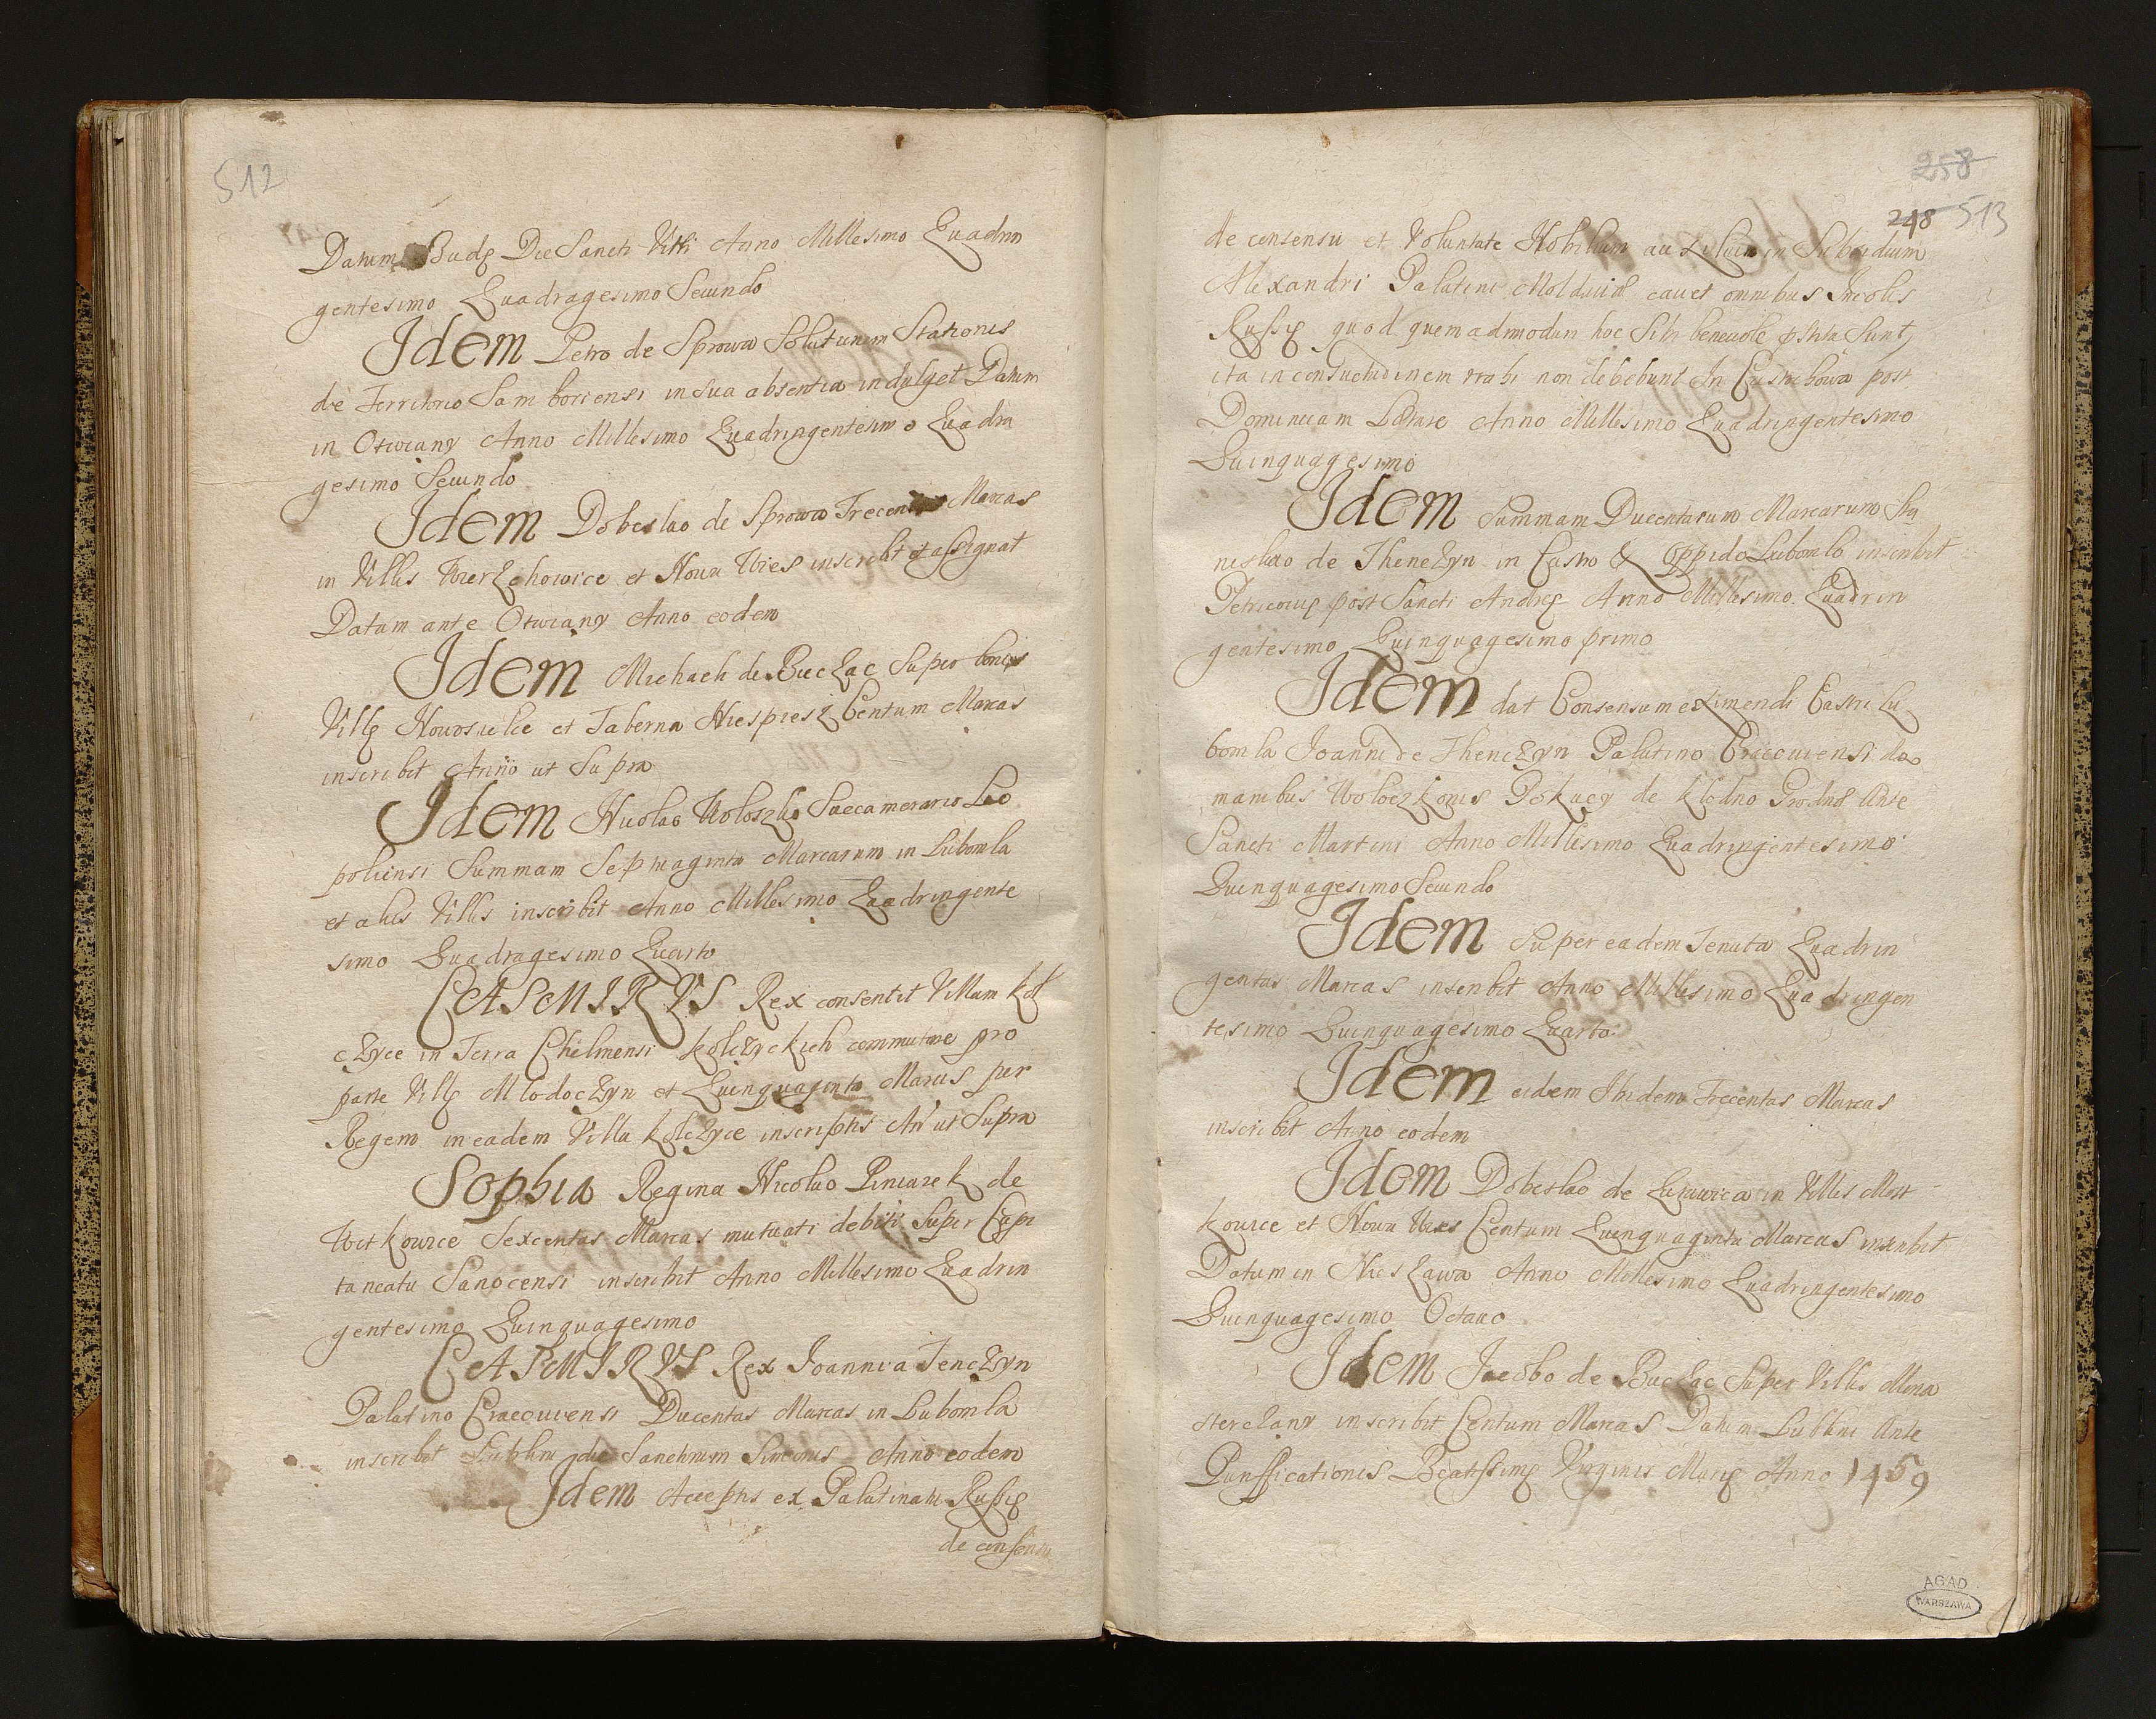 512
Datum Budę Die Sancti Viti Anno Millesimo Quadrin
gentesimo Quadragesimo Secundo
Idem Petro de Sprowa Solutionem Stationis
de Territorio Samboriensi in sua absentia indulget Datum
in Otwiany Anno Millesimo Quadringentesimo Quadra
gesimo Secundo
Idem Dobeslao de Sprowa Trecentas Marcas
in Villis Wierzchowice et Nowa Wies inscribit et assignat
Datum ante Otwiany Anno eodem
Idem Michaeli de Buczac Super bonis
Villę Nowosielce et Taberna Niespiesz Centum Marcas
inscribit Anno ut Supra
Idem Nicolao Woloszko Succamerario Leo
poliensi Summam Septuaginta Marcarum in Lubomla
et aliis Villis inscribit Anno Millesimo Quadringente
simo Quadragesimo Quarto
CASIMIRVS Rex consentit Villam Kol
czyce in Terra Chelmensi Kolczyckich commutare pro
parte Villę Mlodoczyn et Quinquaginta Marcis per
Regem in eadem Villa Kolczyce inscriptis An ut Supra
Sophia Regina Nicolao Pieniazek de
Witkowice Sexcentas Marcas mutuati debiti Super Capi
taneatu Sanocensi inscribit Anno Millesimo Quadrin
gentesimo Quinquagesimo
CASIMIRVS Rex Joanni a Tenczyn
Palatino Cracoviensi Ducentas Marcas in Lubomla
inscribit die Sanctorum Anno eodem
Idem Acceptis ex Palatinatu Russię
de consensu
258
248 513
de consensu et Voluntate Nobilium auxiliis in Subsidium
Alexandri Palatini Moldaviæ cavet omnibus Incolis
Russię quod quemadmodum hoc Sibi benevole pstita Sunt
ita in consuetudinem trahi non debebunt In post
Dominicam Lætare Anno Millesimo Quadringentesimo
Quinquagesimo
Idem Summam Ducentarum Marcarum Sta
nislao de Thenczyn in Castro & Oppido Lubomla inscribit
Petricovię post Sancti Andreę Anno Millesimo Quadrin
gentesimo Quinquagesimo primo
Idem dat Consensum eximendi Castri Lu
bomla Joanni de Thenczyn Palatino Cracoviensi de
manibus Woloczkonis de Klodno Grodnæ Ante
Sancti Martini Anno Millesimo Quadringentesimo
Quinquagesimo Secundo
Idem Super eadem Tenuta Quadrin
gentas Marcas inscribit Anno Millesimo Quadringen
tesimo Quinquagesimo Quarto
Idem eidem Ibidem Trecentas Marcas
inscribit Anno eodem
Idem Dobeslao de Zurawica in Villis Most
kowice et Nowa Wies Centum Quinquaginta Marcas inscribit
Datum in Nieszawa Anno Millesimo Quadringentesimo
Quinquagesimo Octavo
Idem Jacobo de Buczac Super Villis Mona
sterczany inscribit Centum Marcas Datum Lublini Ante
Purifficationis Beatissimę Virginis Marię Anno 1459
AGAD
WARSZAWA